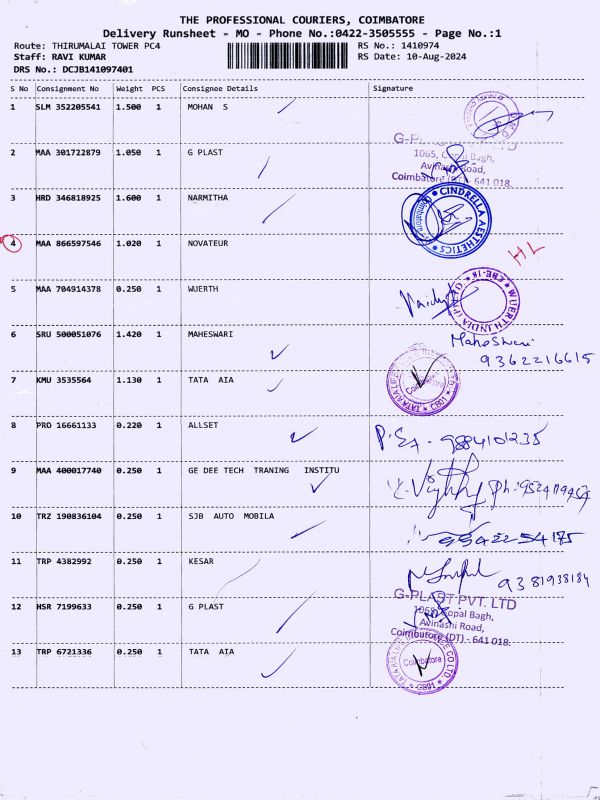 THE PROFESSIONAL COURIERS, COIMBATORE
Delivery Runsheet - MO - Phone No.:0422-3505555 - Page No.:1
Route: THIRUMALAI TOWER PC4 RS No.: 1410974
Staff: RAVI KUMAR RS Date: 10-Aug-2024
DRS No.: DCJB141097401
S No Consignment No Weight PCS Consignee Details Signature
1 SLM 352205541 1.500 1 MOHAN S
G-PLAST PVT. LTD
1065, Gopal Bagh,
2 MAA 301722879 1.050 1 G PLAST
Avinashi Road,
Coimbatore (DT) - 641 018.
3 HRD 346818925 1.600 1 NARMITHA
CINDRELLA AESTHETICS
Coimbatore
4 MAA 866597546 1.020 1 NOVATEUR HL
5 MAA 704914378 0.250 1 WJERTH
WUERTH INDIA CBE-18
6 SRU 500051076 1.420 1 MAHESWARI Maheswari
9362216615
7 KMU 3535564 1.130 1 TATA AIA
Coimbatore
CB01
8 PRO 16661133 0.220 1 ALLSET 9884101235
9 MAA 400017740 0.250 1 GE DEE TECH TRANING INSTITU
10 TRZ 190836104 0.250 1 SJB AUTO MOBILA
11 TRP 4382992 0.250 1 KESAR 9381938184
G-PLAST PVT. LTD
12 HSR 7199633 0.250 1 G PLAST 1065, Gopal Bagh,
Avinashi Road,
Coimbatore (DT) - 641 018.
13 TRP 6721336 0.250 1 TATA AIA
TATA AIA LIFE INSURANCE CO LTD
Coimbatore
CB01